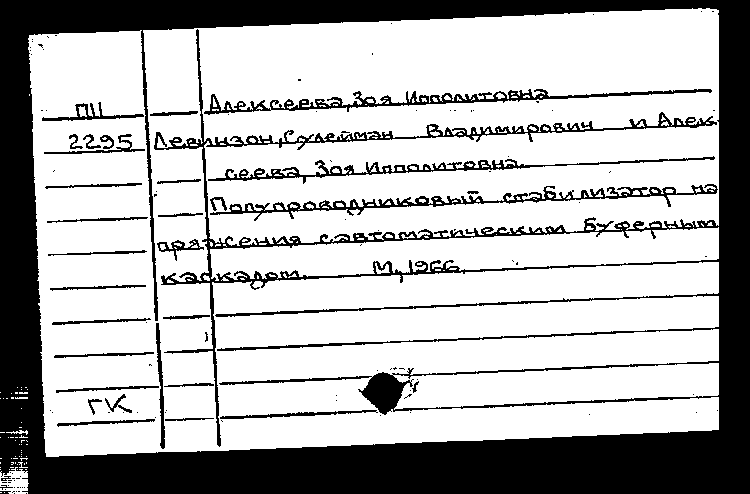 Алексеева, Зоя Ипполитовна
ПII
2295 Левинзон, Сулейман Владимирович и Алек-
сеева, Зоя Ипполитовна.
Полупроводниковый стабилизатор на
пряжения с автоматическим буферным
каскадом. М., 1966.
ГК